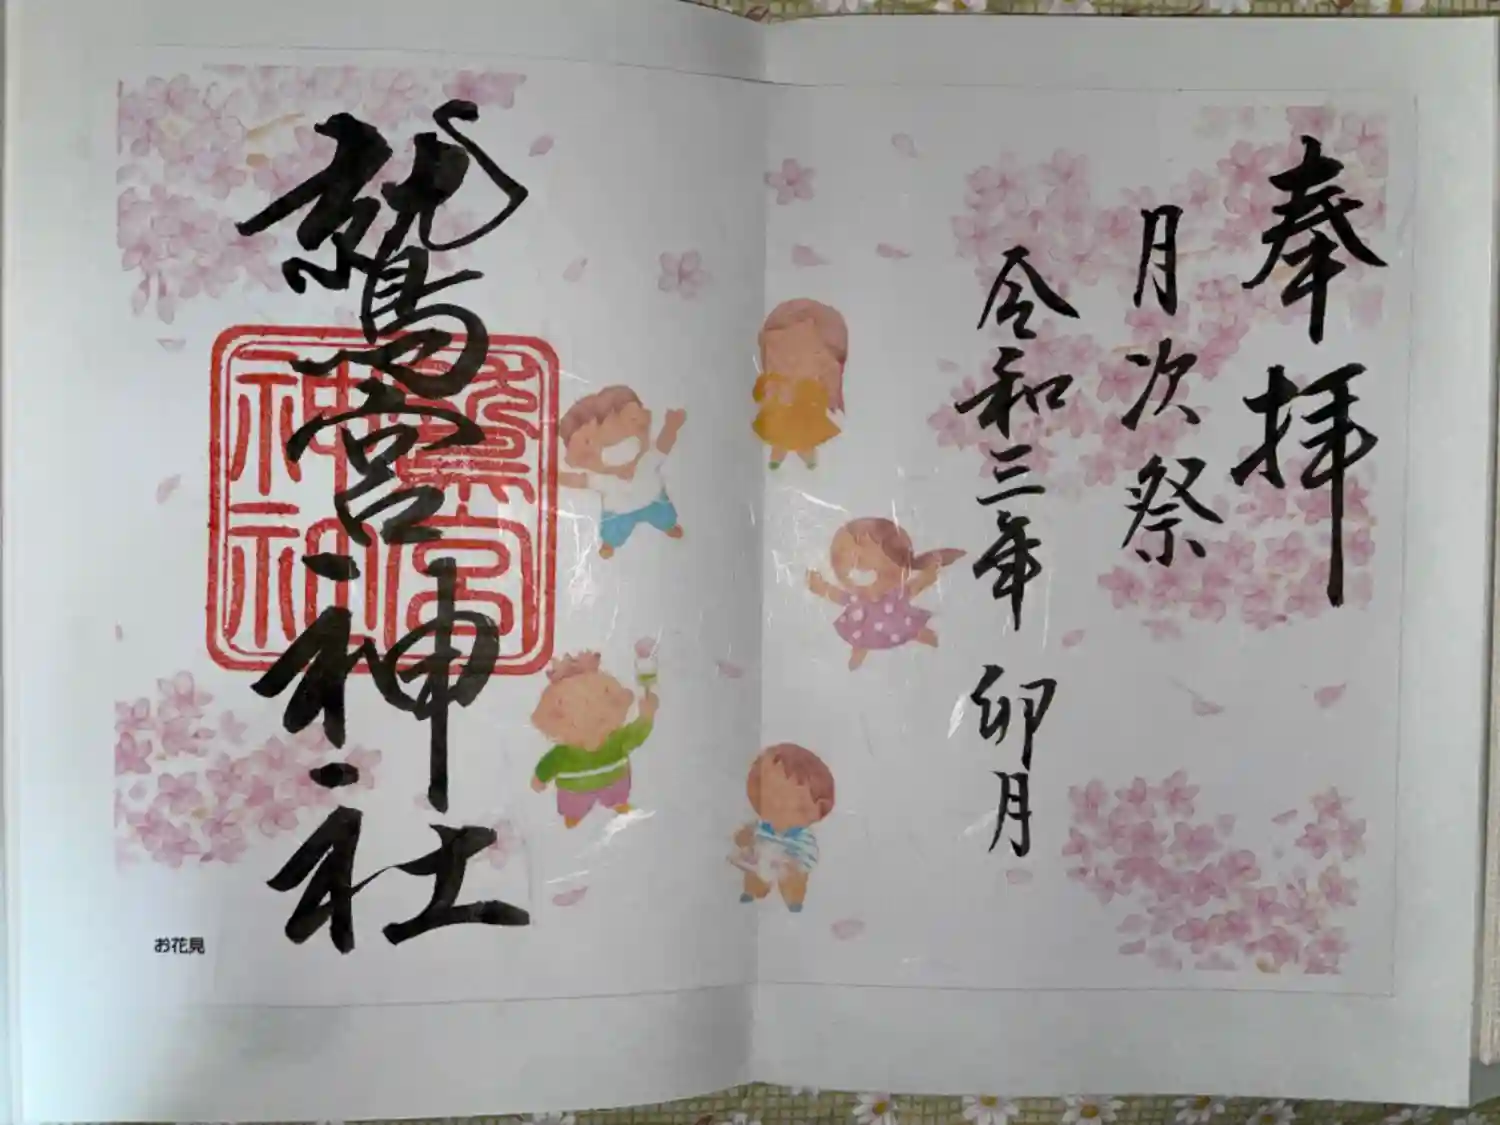 奉拝
月次祭
令和三年 卯月
鷲宮神社
鷲宮神社
お花見